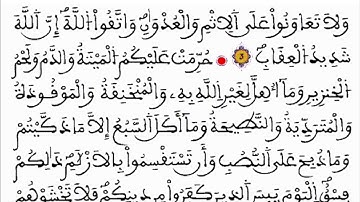 وَلَا تَعَاوَنُوا عَلَى اَلِاثْمِ وَالْعُدْوَٰنِ وَاتَّقُوا اللَّهَ إِنَّ اللَّهَ
شَدِيدُ الْعِقَابِ 3 حُرِّمَتْ عَلَيْكُمُ الْمَيْتَةُ وَالدَّمُ وَلَحْمُ
الْخِنزِيرِ وَمَا أُهِلَّ لِغَيْرِ اللَّهِ بِهِ وَالْمُنْخَنِقَةُ وَالْمَوْقُوذَةُ
وَالْمُتَرَدِّيَةُ وَالنَّطِيحَةُ وَمَا أَكَلَ السَّبُعُ إِلَّا مَا ذَكَّيْتُمْ
وَمَا ذُبِحَ عَلَى النُّصُبِ وَأَن تَسْتَقْسِمُوا بِالْأَزْلَٰمِ ذَٰلِكُمْ
فِسْقٌ الْيَوْمَ يَئِسَ الَّذِينَ كَفَرُوا مِن دِينِكُمْ فَلَا تَخْشَوْهُمْ